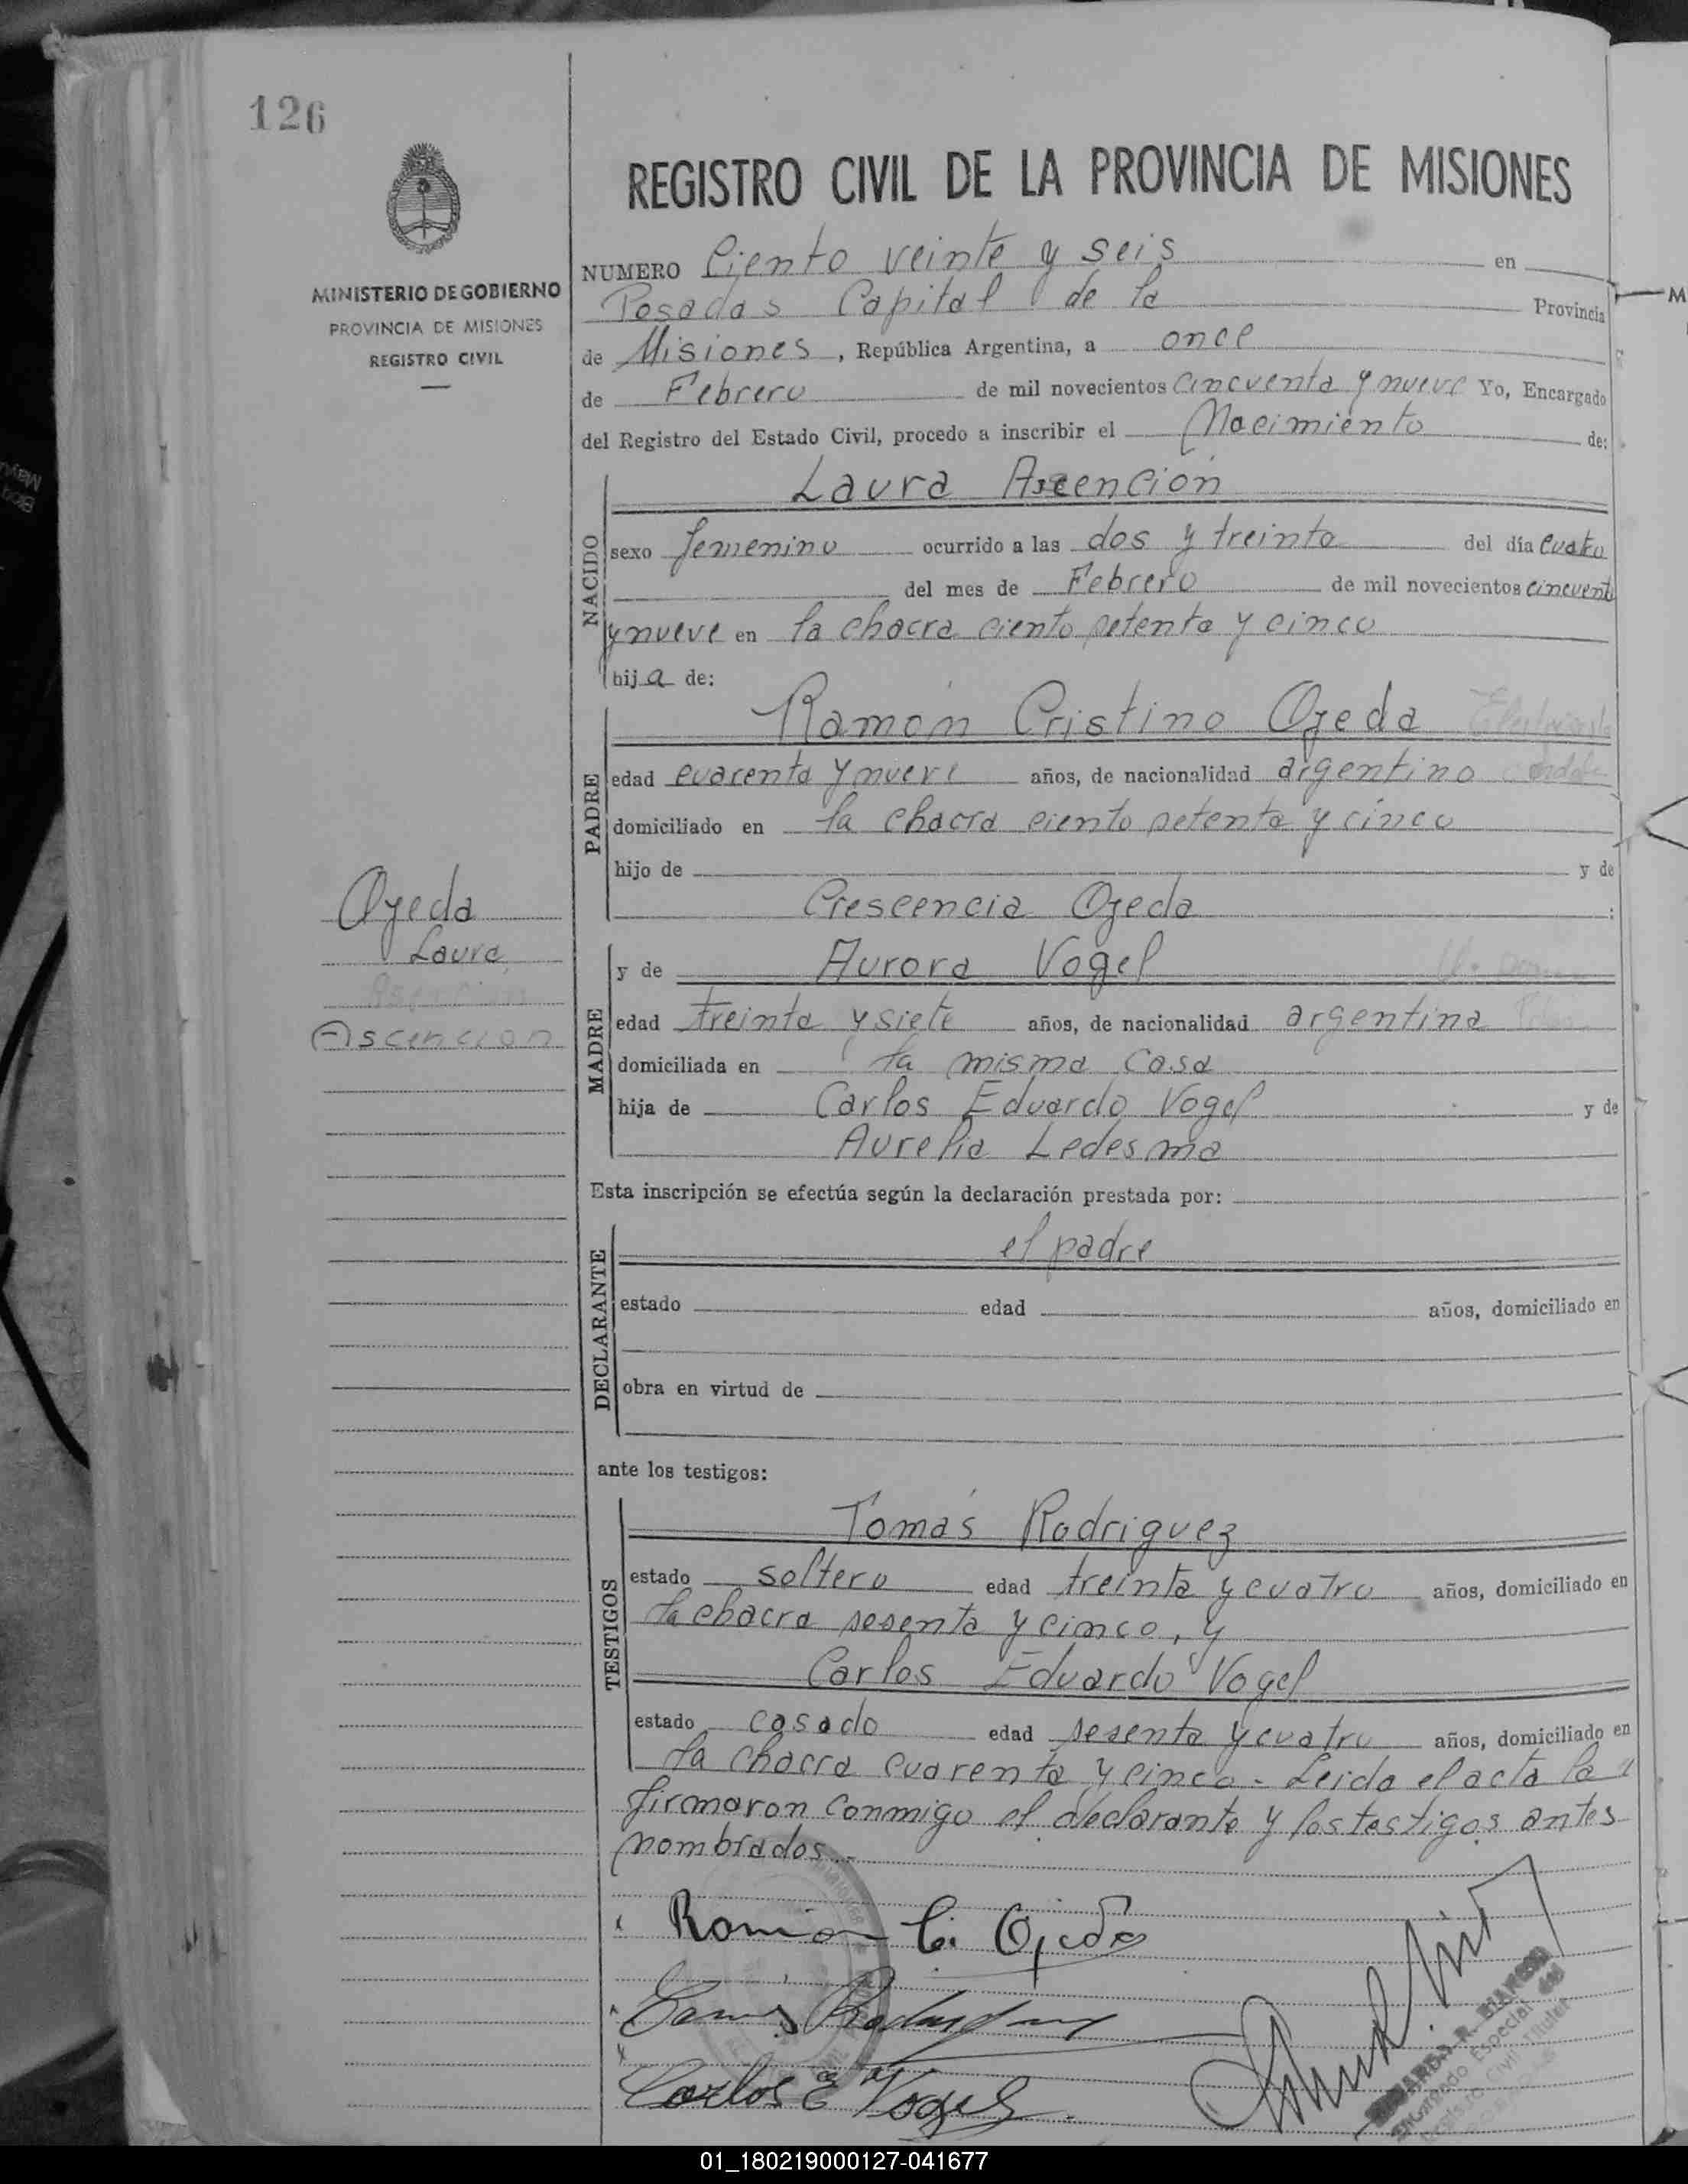 126
REGISTRO CIVIL DE LA PROVINCIA DE MISIONES
MINISTERIO DE GOBIERNO
PROVINCIA DE MISIONES
REGISTRO CIVIL
NUMERO Ciento veinte y seis en
Posadas Capital de la Provincia
de Misiones, República Argentina, a once
de Febrero de mil novecientos cincuenta y nueve Yo, Encargado
del Registro del Estado Civil, procedo a inscribir el Nacimiento de:
NACIDO
Laura Ascención
sexo femenino ocurrido a las dos y treinta del día cuatro
del mes de Febrero de mil novecientos cincuenta
y nueve en la chacra ciento setenta y cinco
hija de:
PADRE
Ramón Cristino Ojeda
edad cuarenta y nueve años, de nacionalidad argentino
domiciliado en la chacra ciento setenta y cinco
hijo de y de
Crescencia Ojeda
Ojeda
Laura
Asencion
Ascencion
MADRE
y de Aurora Vogel
edad treinta y siete años, de nacionalidad argentina
domiciliada en la misma casa
hija de Carlos Eduardo Vogel y de
Aurelia Ledesma
Esta inscripción se efectúa según la declaración prestada por:
DECLARANTE
el padre
estado edad años, domiciliado en
obra en virtud de
ante los testigos:
TESTIGOS
Tomás Rodriguez
estado soltero edad treinta y cuatro años, domiciliado en
la chacra sesenta y cinco, y
Carlos Eduardo Vogel
estado casado edad sesenta y cuatro años, domiciliado en
la chacra cuarenta y cinco - Leida el acta la
firmaron conmigo el declarante y los testigos antes
nombrados.-
Ramón C. Ojeda
Tomás Rodriguez
Carlos E Vogel
Encargado Especial del
Registro Civil Titular
01_180219000127-041677